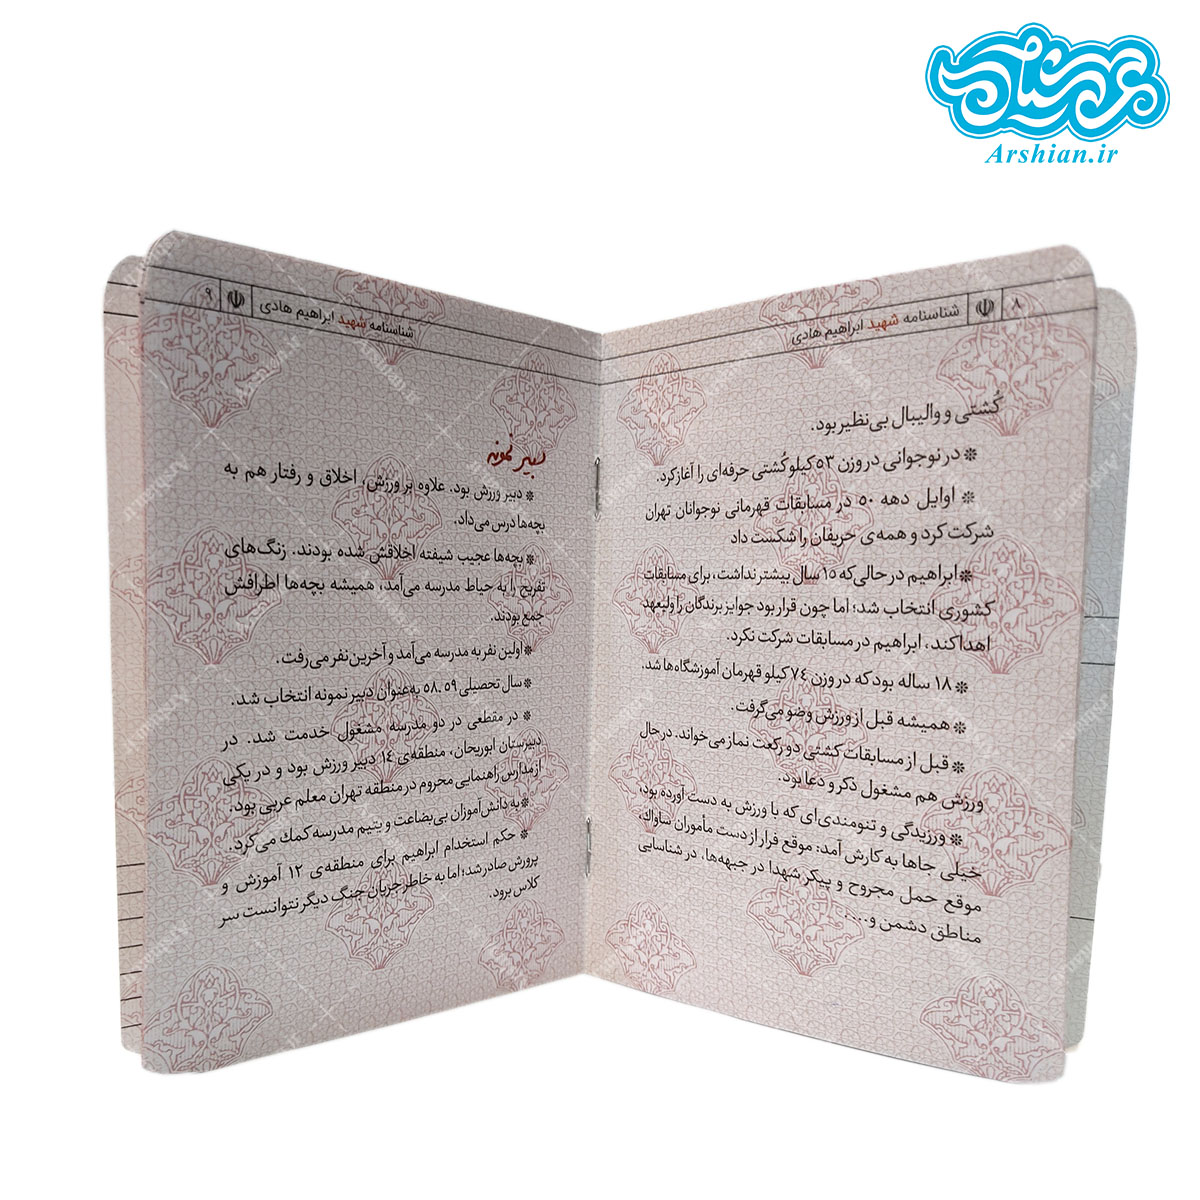 عرشیان
Arshian.ir
۸ شناسنامه شهید ابراهیم هادی
کُشتی و والیبال بی‌نظیر بود.
❊ در نوجوانی در وزن ۵۳ کیلو کُشتی حرفه‌ای را آغاز کرد.
❊ اوایل دهه ۵۰ در مسابقات قهرمانی نوجوانان تهران
شرکت کرد و همه‌ی حریفان را شکست داد
❊ ابراهیم در حالی‌که ۱۵ سال بیشتر نداشت، برای مسابقات
کشوری انتخاب شد؛ اما چون قرار بود جوایز برندگان را ولیعهد
اهدا کند، ابراهیم در مسابقات شرکت نکرد.
❊ ۱۸ ساله بود که در وزن ۷۴ کیلو قهرمان آموزشگاه‌ها شد.
❊ همیشه قبل از ورزش وضو می‌گرفت.
❊ قبل از مسابقات کشتی دو رکعت نماز می‌خواند. در حال
ورزش هم مشغول ذکر و دعا بود.
❊ ورزیدگی و تنومندی‌ای که با ورزش به دست آورده بود،
خیلی جاها به کارش آمد: موقع فرار از دست مأموران ساواك،
موقع حمل مجروح و پیکر شهدا در جبهه‌ها، در شناسایی
مناطق دشمن و....
شناسنامه شهید ابراهیم هادی ۹
دبیر نمونه
❊ دبیر ورزش بود. علاوه بر ورزش، اخلاق و رفتار هم به
بچه‌ها درس می‌داد.
❊ بچه‌ها عجیب شیفته اخلاقش شده بودند. زنگ‌های
تفریح را به حیاط مدرسه می‌آمد، همیشه بچه‌ها اطرافش
جمع بودند.
❊ اولین نفر به مدرسه می‌آمد و آخرین نفر می‌رفت.
❊ سال تحصیلی ۵۹ـ۵۸ به‌عنوان دبیر نمونه انتخاب شد.
❊ در مقطعی در دو مدرسه، مشغول خدمت شد. در
دبیرستان ابوریحان، منطقه‌ی ۱۴ دبیر ورزش بود و در یکی
از مدارس راهنمایی محروم در منطقه تهران معلم عربی بود.
❊ به دانش‌آموزان بی‌بضاعت و یتیم مدرسه کمك می‌کرد.
❊ حکم استخدام ابراهیم برای منطقه‌ی ۱۲ آموزش و
پرورش صادر شد؛ اما به خاطر جریان جنگ دیگر نتوانست سر
کلاس برود.